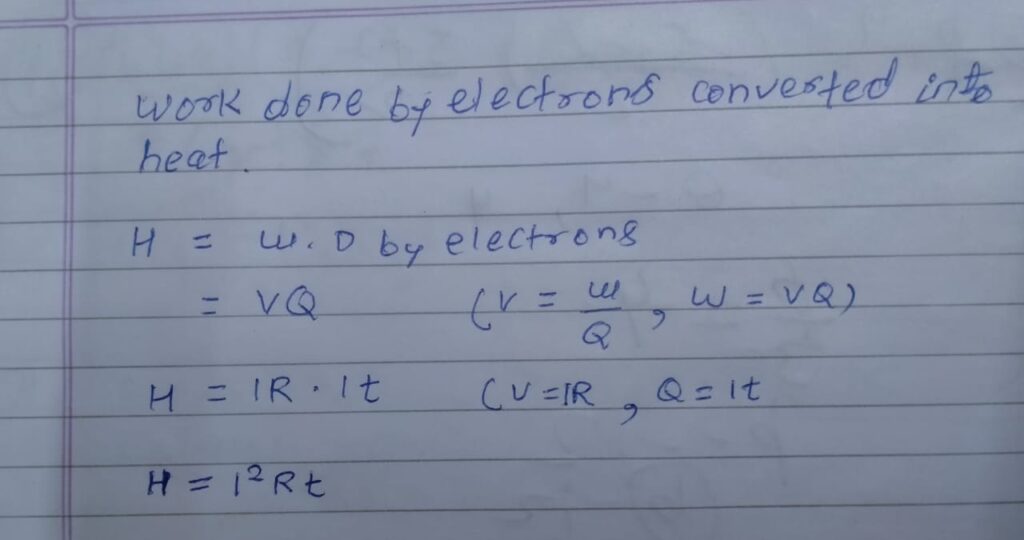 work done by electrons converted into
heat.
H = W.D by electrons
= VQ (V = W/Q, W = VQ)
H = IR · It (V=IR, Q = It
H = I²Rt